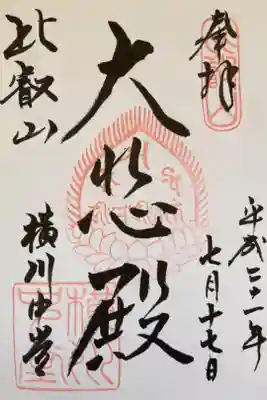 奉拝
平成二十一年
七月十七日
大悲殿
比叡山
横川中堂
横川
中堂